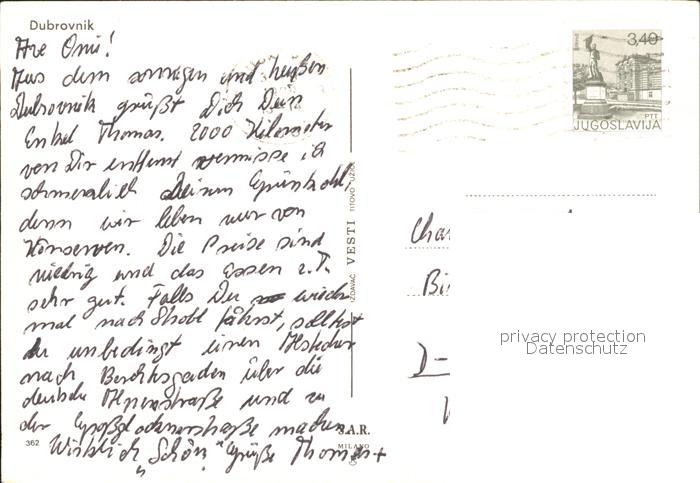 Dubrovnik
Ave Omi!
Aus dem sonnigen und heißen
Dubrovnik grüßt Dich Dein
Enkel Thomas. 2000 Kilometer
von Dir entfernt vermisse ich
schmerzlich Deinen Grünkohl,
denn wir leben nur von
Konserven. Die Preise sind
niedrig und das Essen z.T.
sehr gut. Falls Du wieder
mal nach fährst, solltest
du unbedingt einen Abstecher
nach Berchtesgaden über die
deutsche Alpenstraße und zu
der Großglocknerstraße machen.
Wirklich „Schön“ Grüße Thomas
362
S.A.R.
MILANO
IZDAVAČ VESTI TITOVO UŽICE
3,40
PTT
JUGOSLAVIJA
Char
Bi
D-
privacy protection
Datenschutz